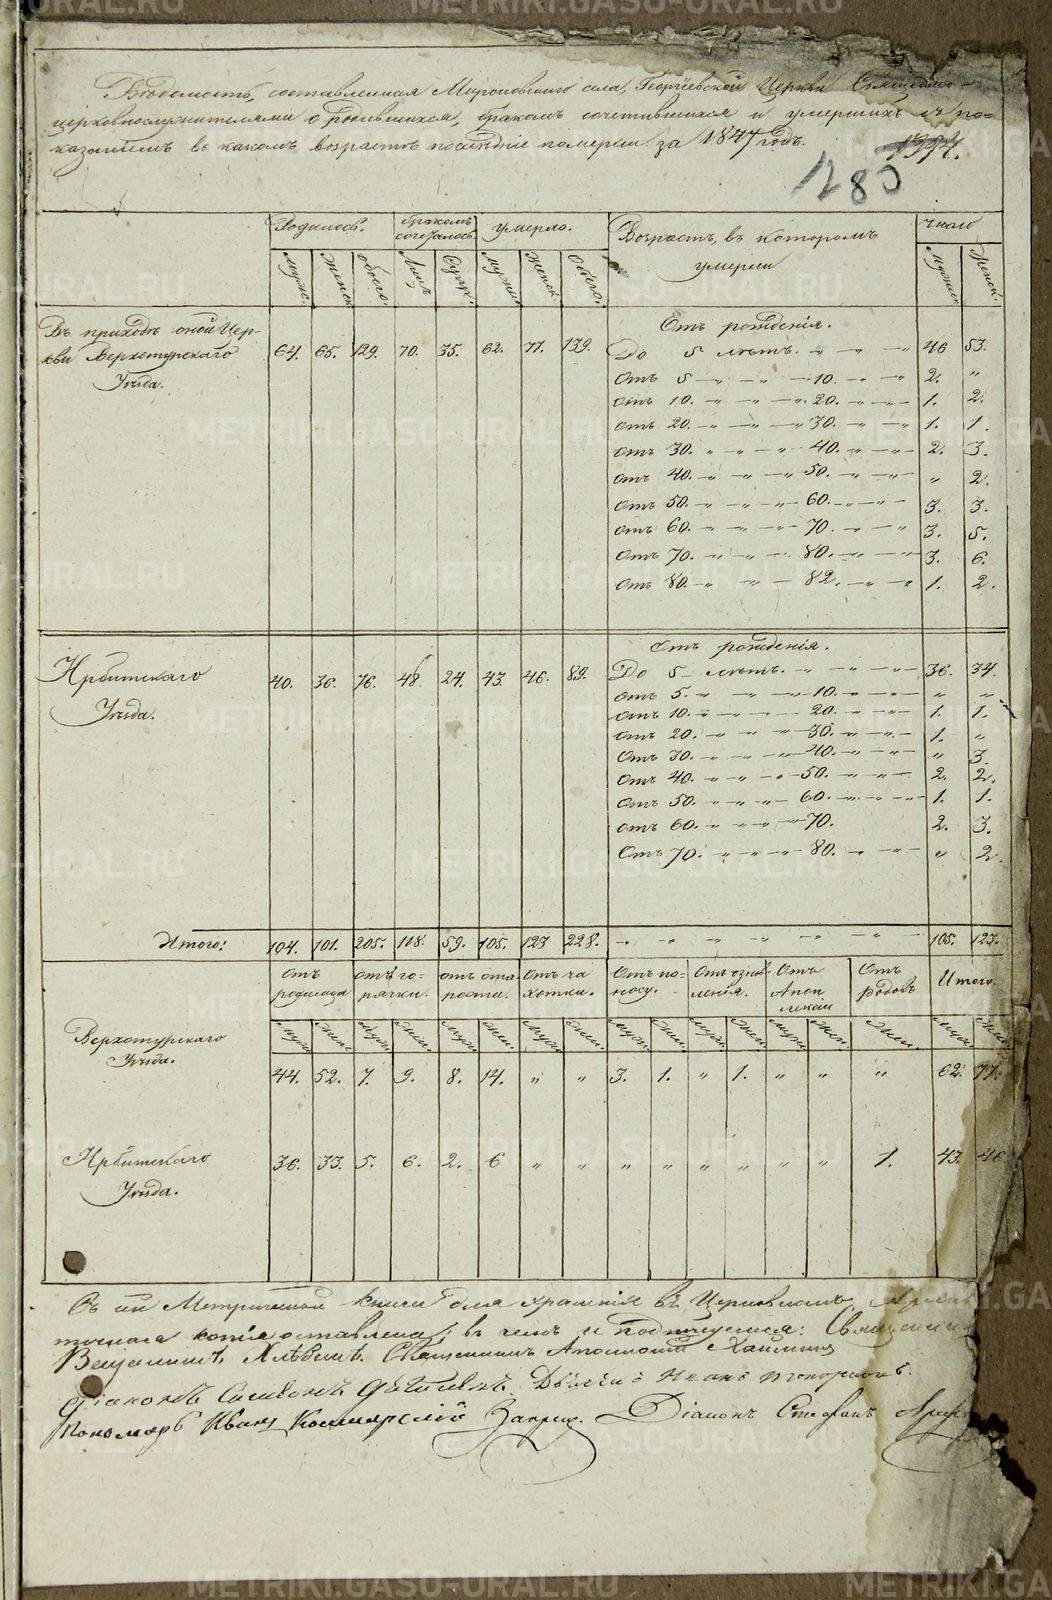 Ведомость, составленная Мироновскаго села, Георгіевской Церкви Священно-
церковнослужителями о родившихся, бракомъ сочетавшихся и умершихъ съ по-
казаніемъ въ какомъ возрастѣ последніе померли за 1847 годъ.
1280
Родилось. бракомъ сочеталось. умерло. Возрастъ, въ которомъ умерли число
мужс. женск. обоего. Лицъ Супр. мужс. женск. обоего. мужес. Женск.
Въ приходѣ оной Цер-
кви Верхотурскаго
Уѣзда.
64. 65. 129. 70. 35. 62. 77. 139.
Отъ рожденія.
До 5 лѣтъ. 46 53.
Отъ 5 10. 2. "
отъ 10. 20. 1. 2.
отъ 20. 30. 1. 1.
отъ 30. 40. 2. 3.
отъ 40. 50. " 2.
отъ 50. 60. 3. 3.
отъ 60. 70. 3. 5.
отъ 70. 80. 3. 6.
отъ 80. 82. 1. 2.
Ирбитскаго
Уѣзда.
40. 36. 76. 48. 24. 43. 46. 89.
Отъ рожденія.
До 5 лѣтъ. 36. 34.
отъ 5. 10. " "
отъ 10. 20. 1. 1.
отъ 20. 30. 1. "
отъ 30. 40. " 3.
отъ 40. 50. 2. 2.
отъ 50. 60. 1. 1.
отъ 60. 70. 2. 3.
Отъ 70. 80. " 2.
Итого: 104. 101. 205. 118. 59. 105. 123 228. 105. 123.
отъ родимца отъ го-рячки. отъ ста-рости. Отъ ча хотки. Отъ по-носу. Отъ Апоп лексіи Отъ родовъ Итого.
муж. жен. муж. жен. муж. жен. муж. жен. муж. жен. муж. жен. муж. жен. жен. муж. жен.
Верхотурскаго
Уѣзда.
44. 52. 7. 9. 8. 14. " " 3. 1. " 1. " " " 62. 77.
Ирбитскаго
Уѣзда.
36. 33. 5. 6. 2. 6 " " " " " " " " 1. 43. 46
Съ сей Метрической книги для храненія въ Церковномъ
точная копія оставлена; въ чемъ и подписуемся: Священник
Священникъ Аполлоній
діаконъ Иванъ
Пономарь Иванъ Діаконъ Стефанъ
METRIKI.GASU-URAL.RU